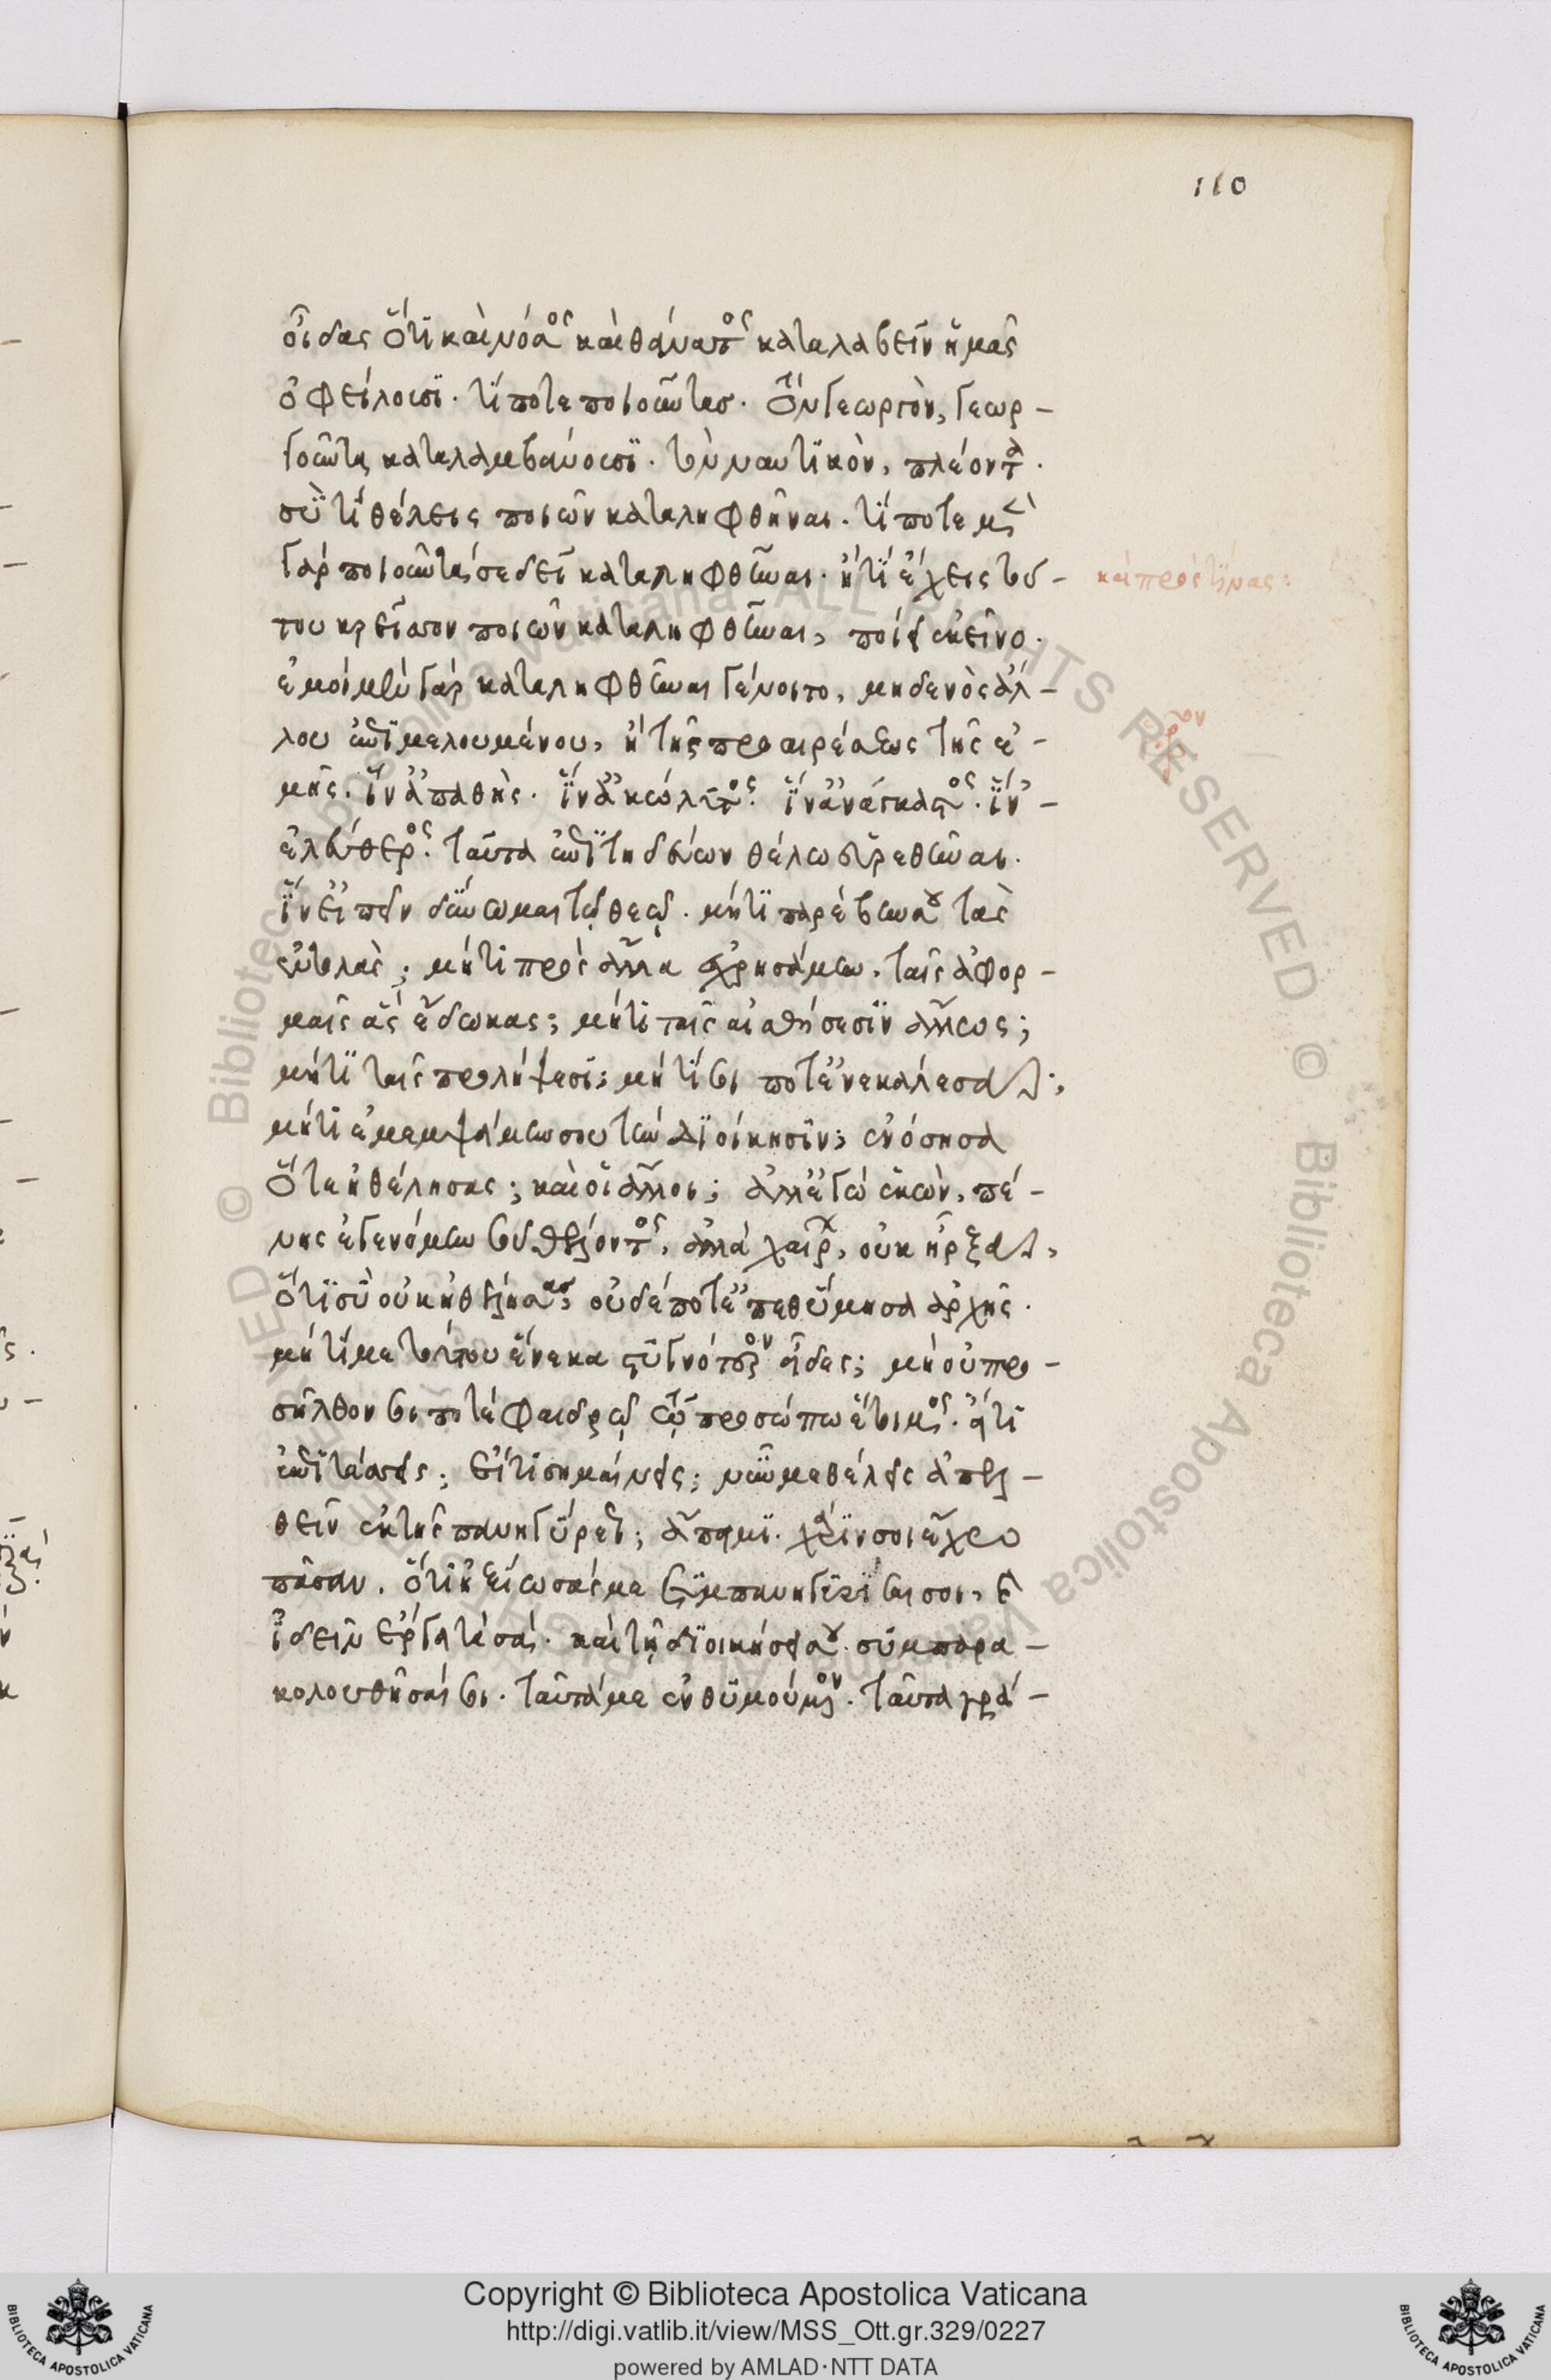 110
οἶδας ὅτι καὶ νόσος καὶ θάνατος καταλαβεῖν ἡμᾶς
ὀφείλουσι. τί ποτε ποιοῦντας. τὸν γεωργὸν, γεωρ-
γοῦντα καταλαμβάνουσι. τὸν ναυτικὸν, πλέοντα.
σὺ τί θέλεις ποιῶν καταληφθῆναι. τί ποτε μὲν
γάρ ποιοῦντά σε δεῖ καταληφθῆναι. ἤ τι ἔχεις τού-
καὶ πρὸς τίνας:
του κρεῖσσον ποιῶν καταληφθῆναι, ποίει ἐκεῖνο.
ἐμοὶ μὲν γάρ καταληφθῆναι γένοιτο, μηδενὸς ἄλ-
λου ἐπιμελουμένου, ἢ τῆς προαιρέσεως τῆς ἐ-
μῆς. ἵν ἀπαθὴς. ἵν ἀκώλυτος. ἵν ἀνάγκαστος. ἵν-
ἐλεύθερος. ταῦτα ἐπιτηδεύων θέλω εὑρεθῆναι.
ἵν εἰπεῖν δύνωμαι τῷ θεῷ. μή τι παρέβην σου τὰς
ἐντολὰς; μή τι πρὸς ἄλλα ἐχρησάμην. ταῖς ἀφορ-
μαῖς ἃς ἔδωκας; μή τι ταῖς αἰσθήσεσιν ἄλλως;
μή τι ταῖς προλήψεσι; μή τί σοι ποτ ἐνεκάλεσα;
μή τι ἐμεμψάμην σου τὴν διοίκησιν; ἐνόσησα
ὅτε ἠθέλησας; καὶ οἱ ἄλλοι; ἀλλ ἐγὼ ἑκὼν. πέ-
νης ἐγενόμην σοῦ θέλοντος. ἀλλὰ χαίρων, οὐκ ἦρξα,
ὅτι σὺ οὐκ ἠθέλησας; οὐδέποτ ἐπεθύμησα ἀρχῆς.
μή τί με τούτου ἕνεκα στυγνότερον εἶδες; μὴ οὐ προ-
σῆλθον σοι ποτὲ φαιδρῷ τῷ προσώπω ἕτοιμος. εἴ τι
ἐπιτάσσεις; εἴ τι σημαίνεις; νῦν με θέλεις ἀπελ-
θεῖν ἐκ τῆς πανηγύρεως; ἄπειμι. χάριν σοι ἔχω
πᾶσαν. ὅτι ἠξίωσάς με συμπανηγυρίσαι σοι, καὶ
ἰδεῖν ἔργα τὰ σά. καὶ τῇ διοικήσει σου συμπαρα-
κολουθῆσαί σοι. ταῦτά με ἐνθυμούμενον. ταῦτα γρά-
Copyright © Biblioteca Apostolica Vaticana
http://digi.vatlib.it/view/MSS_Ott.gr.329/0227
powered by AMLAD·NTT DATA